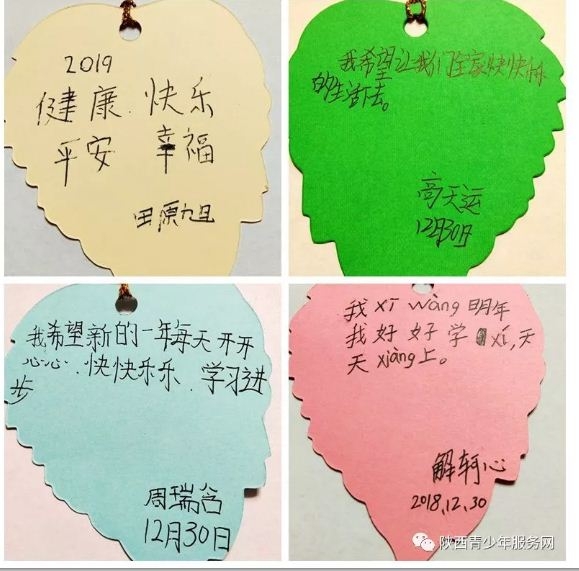 2019
健康.快乐
平安 幸福
田原旭
我希望让我们全家快快林
的生活下去。
高天运
12月30日
我希望新的一年每天开开
心心.快快乐乐.学习进
步
周瑞含
12月30日
我xī wàng明年
我好好学xí,天
天xiàng上。
解轲心
2018.12.30
陕西青少年服务网